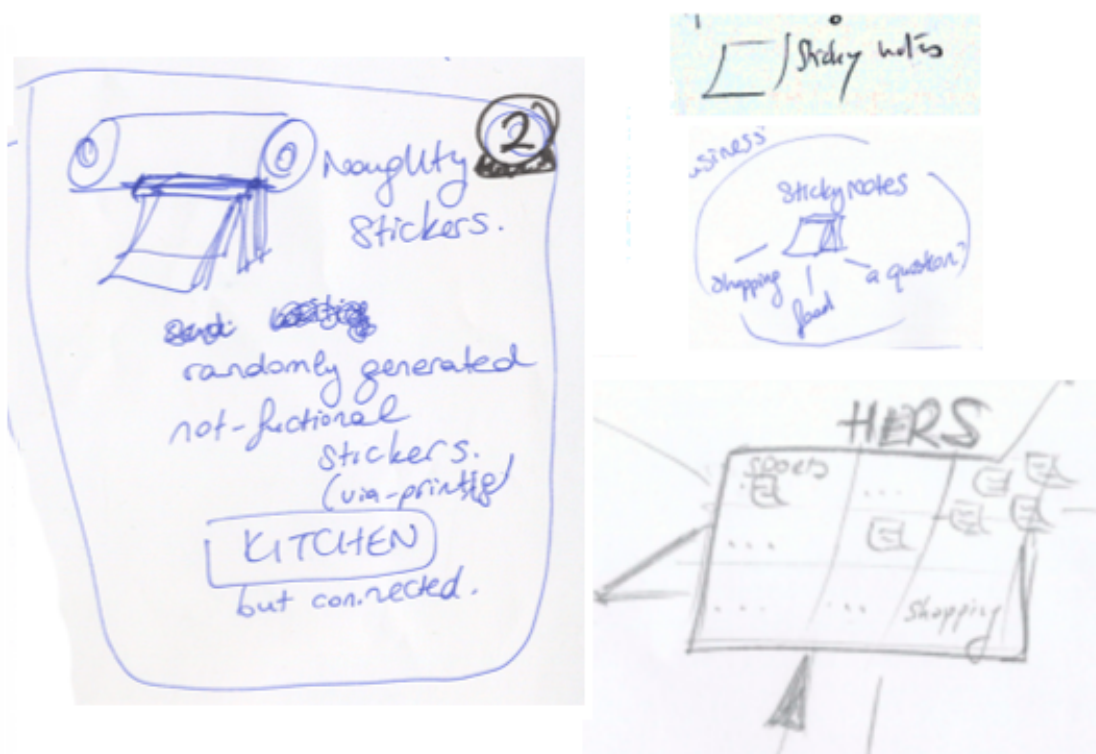 2
Naughty
Stickers.
randomly generated
not-fuctional
stickers.
(via-printig)
KITCHEN
but connected.
Sticky notes
usiness
Sticky Notes
Shopping
food
a question?
HERS
SPORTS
...
...
... ...
Shopping